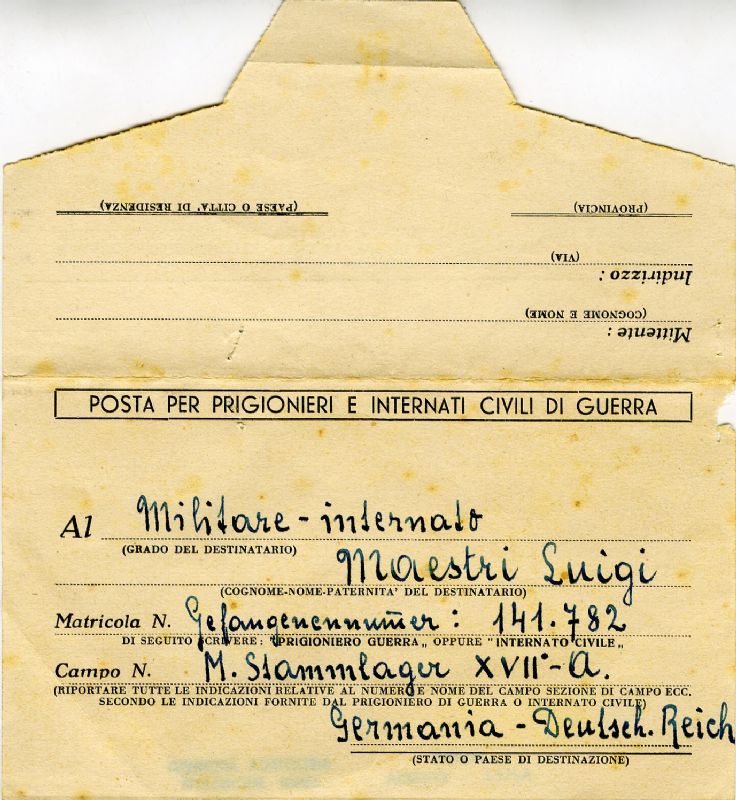 (PAESE O CITTA' DI RESIDENZA) (PROVINCIA)
(VIA)
Indirizzo :
(COGNOME E NOME)
Mittente :
POSTA PER PRIGIONIERI E INTERNATI CIVILI DI GUERRA
Al Militare - internato
(GRADO DEL DESTINATARIO)
Maestri Luigi
(COGNOME-NOME-PATERNITA' DEL DESTINATARIO)
Matricola N. Gefangenennum̄er : 141.782
DI SEGUITO SCRIVERE: "PRIGIONIERO GUERRA„ OPPURE "INTERNATO CIVILE„
Campo N. M. Stammlager XVII°-A.
(RIPORTARE TUTTE LE INDICAZIONI RELATIVE AL NUMERO E NOME DEL CAMPO SEZIONE DI CAMPO ECC.
SECONDO LE INDICAZIONI FORNITE DAL PRIGIONIERO DI GUERRA O INTERNATO CIVILE)
Germania - Deutsch. Reich
(STATO O PAESE DI DESTINAZIONE)